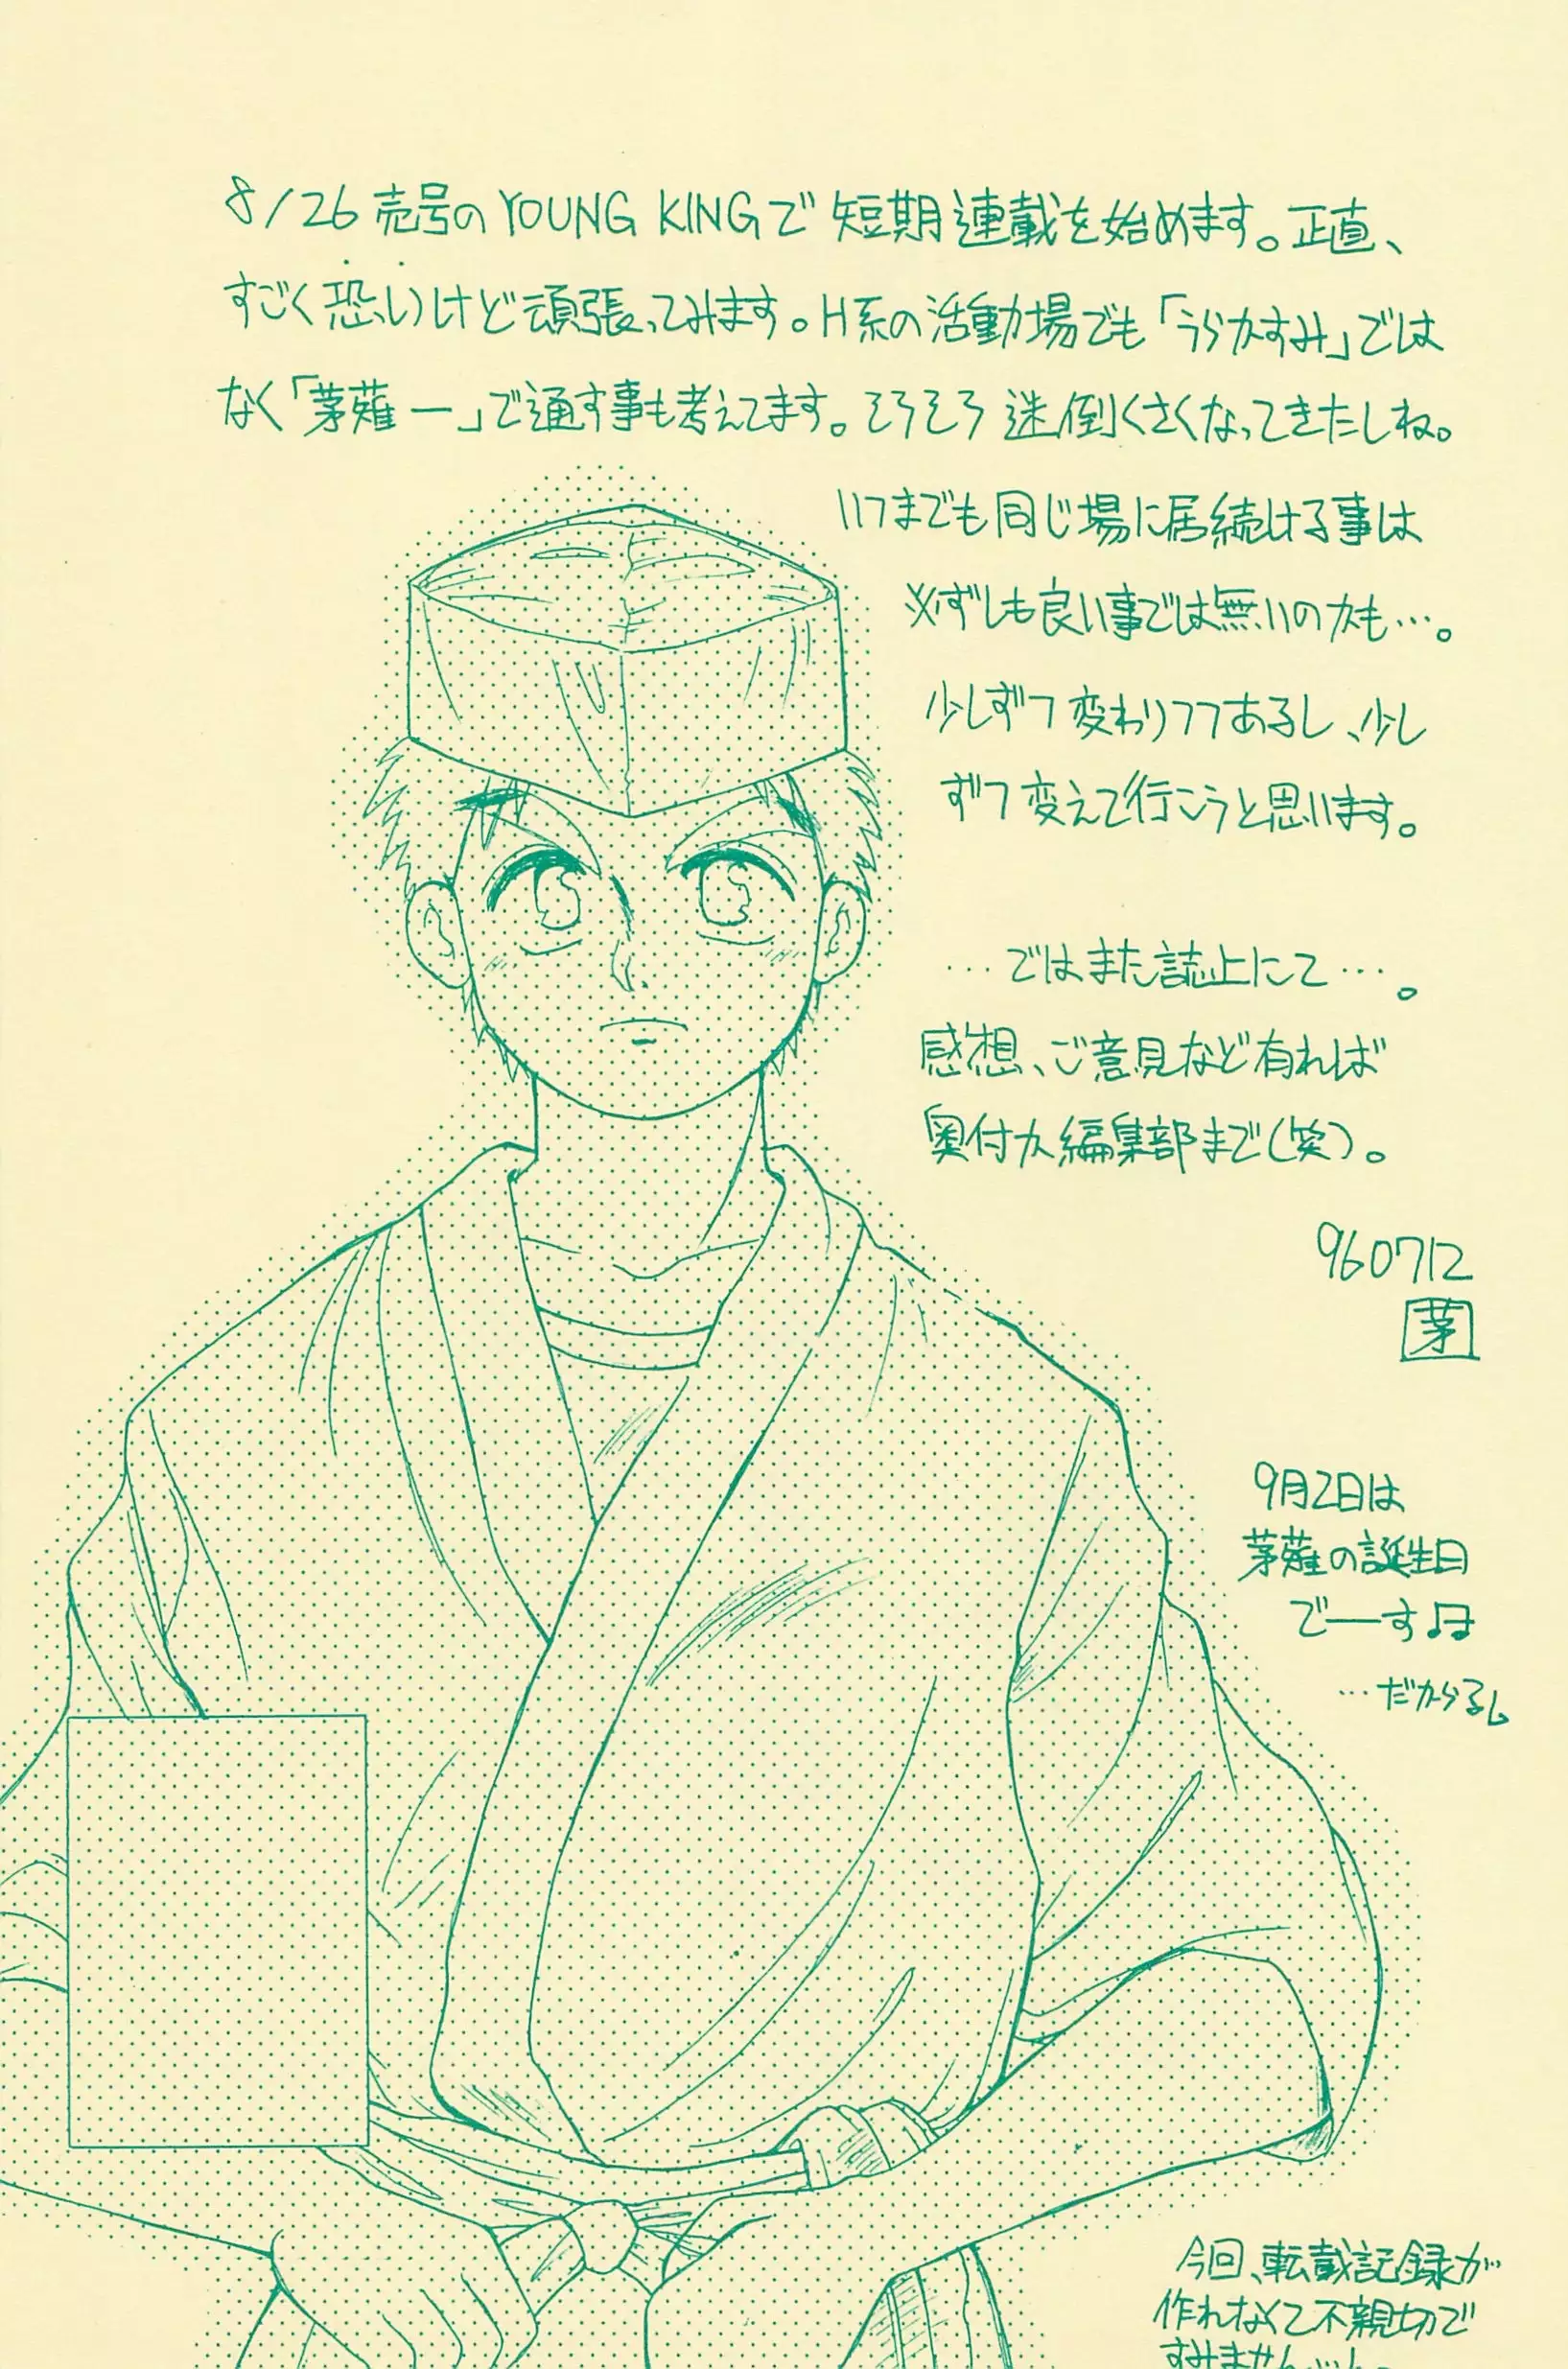 8/26売号のYOUNG KINGで短期連載を始めます。正直、
すごく恐いけど頑張ってみます。H系の活動場でも「うらかすみ」では
なく「茅薙一」で通す事も考えてます。そろそろ迷倒くさくなってきたしね。
いつまでも同じ場に居続ける事は
必ずしも良い事では無いのかも…。
少しずつ変わりつつあるし、少し
ずつ変えて行こうと思います。
…ではまた誌上にて…。
感想、ご意見など有れば
奥付か編集部まで(笑)。
960712
茅
9月2日は
茅薙の誕生日
でーす♫
…だから何
今回、転載記録が
作れなくて不親切で
すみません